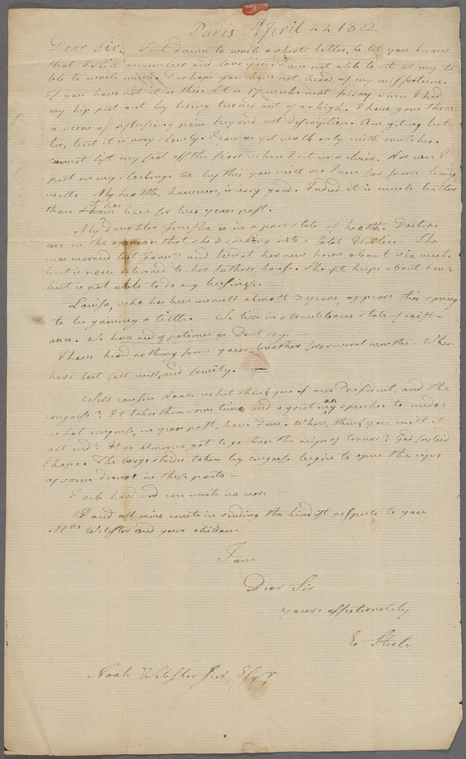 Paris April 22 1802
Dear Sir, I set down to write a short letter, to let you know
that I still remember and love you. I am not able to sit at my ta-
ble to write much. I suppose you have not heard of my misfortune.
If you have not it is this. It is 19 weeks next Friday since I had
my hip put out by being turned out of a sleigh. I have gone throu
a scene of distressing pain beyond all description. Am getting bet-
ter, but it is very slowly. I can as yet walk only with crutches.
cannot lift my foot off the floor when I sit in a chair. Nor can I
put on my stockings. By this you will see I am far from being
well. My health, however, is very good. Indeed it is much better
than it has been for two years past.
My Daughter is in a poor state of health. Doctors
are in the opinion that she is sinking into a
was married last Jany and lived at her new home about six weeks
but is now returned to her fathers house. She yet keeps about house
but is not able to do any business.
Louisa, who has been unwell almost 3 years, appears this spring
to be gaining a little. We live in a troublesome state of exist-
ence. We have need of patience as Davd says.
I have heard nothing from your brother for several months. When
heard last all well, and family.
Well cousin Noah what think you of our President, and the
congress? It takes them some time and a great many speeches to undo
what congress, in years past, have done. Where, think you will it
all end? Are we not to go thro the reign of terror? God forbid
I hope. The large strides taken by congress begins to open the eyes
of some in these parts
I and can write no more
I and all mine unite in sending the kindest respects to you
Mrs Webster and your children
I am
Dear Sir
yours affectionately
E Steele
Noah Webster Junr Esqr